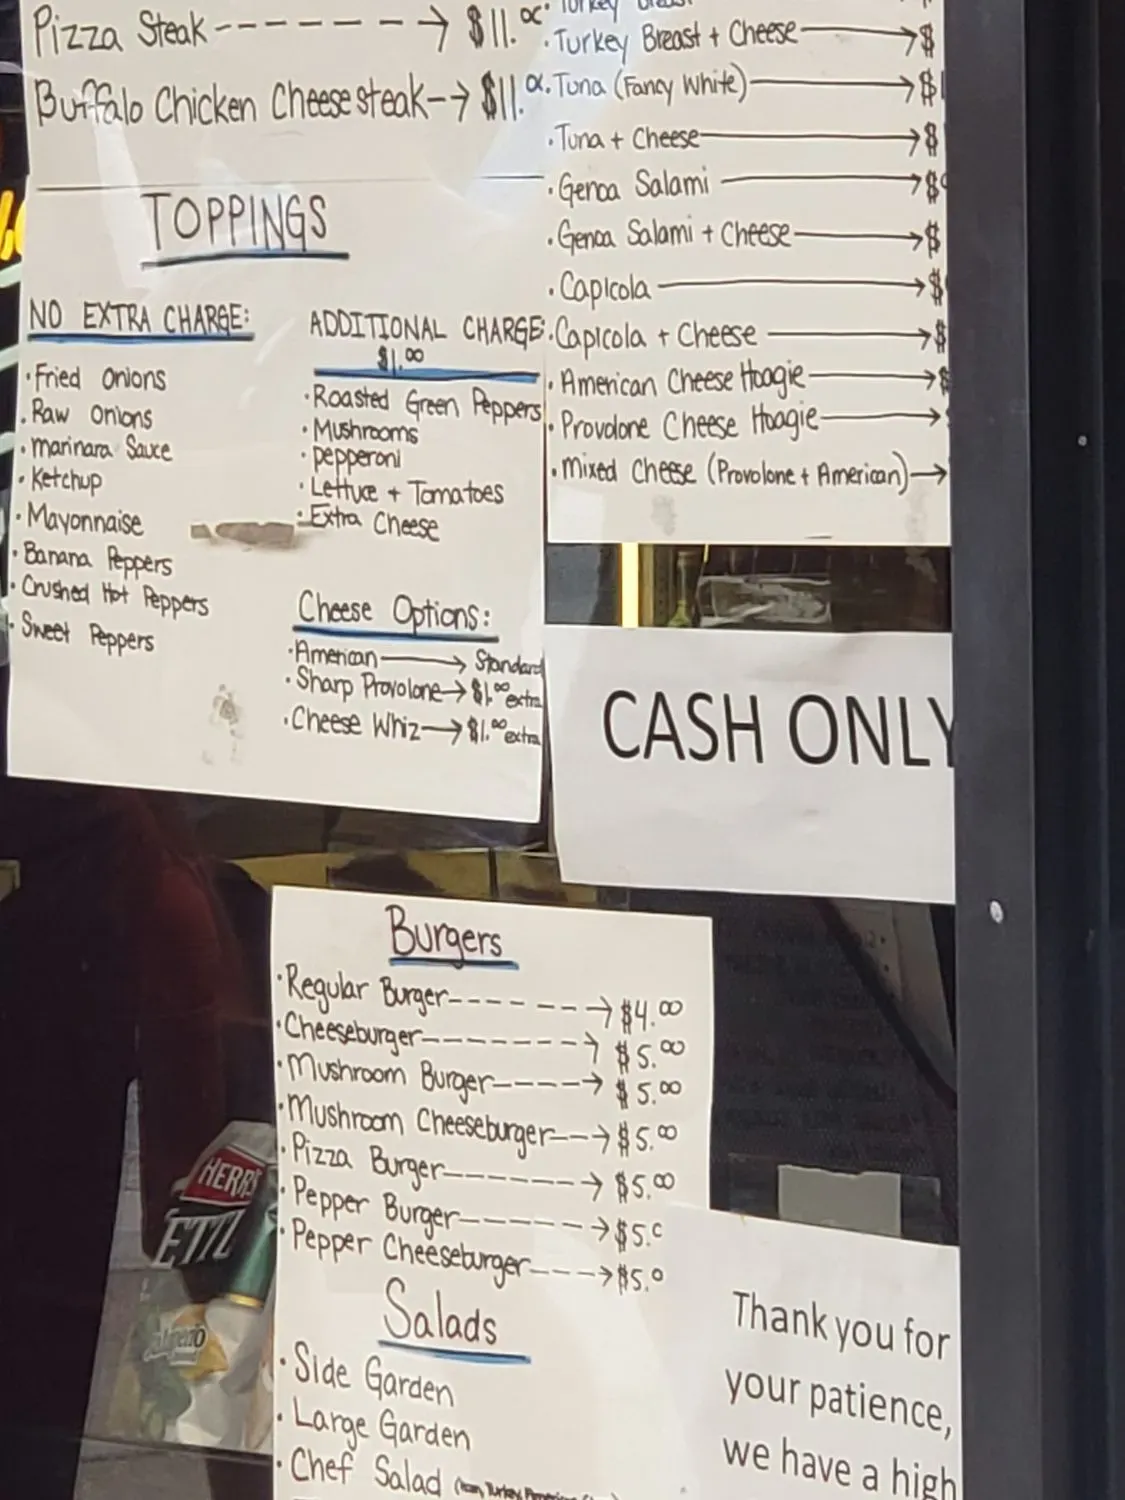 Pizza Steak -------→ $11.00
Buffalo Chicken Cheesesteak--→ $11.00
TOPPINGS
NO EXTRA CHARGE:
• Fried Onions
• Raw Onions
• Marinara Sauce
• Ketchup
• Mayonnaise
• Banana Peppers
• Crushed Hot Peppers
• Sweet Peppers
ADDITIONAL CHARGE:
$1.00
• Roasted Green Peppers
• Mushrooms
• pepperoni
• Lettuce + Tomatoes
• Extra Cheese
Cheese Options:
• American → Standard
• Sharp Provolone → $1.00 extra
• Cheese Whiz → $1.00 extra
Turkey Breast
• Turkey Breast + Cheese → $
• Tuna (Fancy White) → $1
• Tuna + Cheese → $
• Genoa Salami → $
• Genoa Salami + Cheese → $
• Capicola → $
• Capicola + Cheese → $
• American Cheese Hoagie → $
• Provolone Cheese Hoagie →
• Mixed Cheese (Provolone + American) →
CASH ONLY
Burgers
• Regular Burger------→ $4.00
• Cheeseburger-------→ $5.00
• Mushroom Burger----→ $5.00
• Mushroom Cheeseburger--→ $5.00
• Pizza Burger------→ $5.00
• Pepper Burger-----→ $5.0
• Pepper Cheeseburger---→ $5.0
Salads
• Side Garden
• Large Garden
• Chef Salad
HERR'S
Jalapeño
Thank you for
your patience,
we have a high